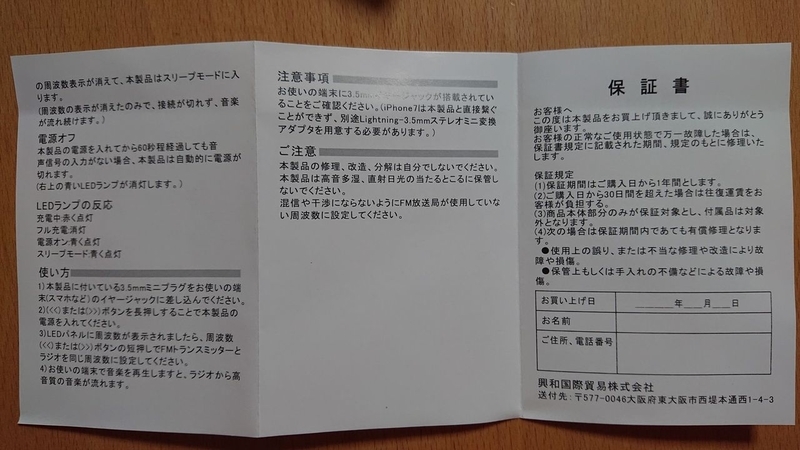 の周波数表示が消えて、本製品はスリープモードに入
ります。
(周波数の表示が消えたのみで、接続が切れず、音楽
が流れ続けます。)
電源オフ
本製品の電源を入れてから60秒程経過しても音
声信号の入力がない場合、本製品は自動的に電源が
切れます。
(右上の青いLEDランプが消灯します。)
LEDランプの反応
充電中:赤く点灯
フル充電:消灯
電源オン:青く点灯
スリープモード:青く点灯
使い方
1)本製品に付いている3.5mmミニプラグをお使いの端
末(スマホなど)のイヤージャックに差し込んでください。
2)(<<)または(>>)ボタンを長押しすることで本製品の
電源を入れてください。
3)LEDパネルに周波数が表示されましたら、周波数
(<<)または(>>)ボタンの短押しでFMトランスミッターと
ラジオを同じ周波数に設定してください。
4)お使いの端末で音楽を再生しますと、ラジオから高
音質の音楽が流れます。
注意事項
お使いの端末に3.5mmイヤージャックが搭載されてい
ることをご確認ください。(iPhone7は本製品と直接繋ぐ
ことができず、別途Lightning-3.5mmステレオミニ変換
アダプタを用意する必要があります。)
ご注意
本製品の修理、改造、分解は自分でしないでください。
本製品は高音多湿、直射日光の当たるところに保管し
ないでください。
混信や干渉にならないようにFM放送局が使用していな
い周波数に設定してください。
保証書
お客様へ
この度は本製品をお買上げ頂きまして、誠にありがとう
御座います。
お客様の正常なご使用状態で万一故障した場合は、
保証書規定に記載された期間、規定のもとに修理いた
します。
保証規定
(1)保証期間はご購入日から1年間とします。
(2)ご購入から30日間を超えた場合は往復運賃をお
客様が負担する。
(3)商品本体部分のみが保証対象とし、付属品は対象
外となります。
(4)次の場合は保証期間内であても有償修理となりま
す。
●使用上の誤り、または不当な修理や改造により故
障や損傷。
●保管上もしくは手入れの不備などによる故障や損
傷。
お買い上げ日 ______年___月___日
お名前
ご住所、電話番号
興和国際貿易株式会社
送付先:〒577-0046大阪府東大阪市西堤本通西1-4-3